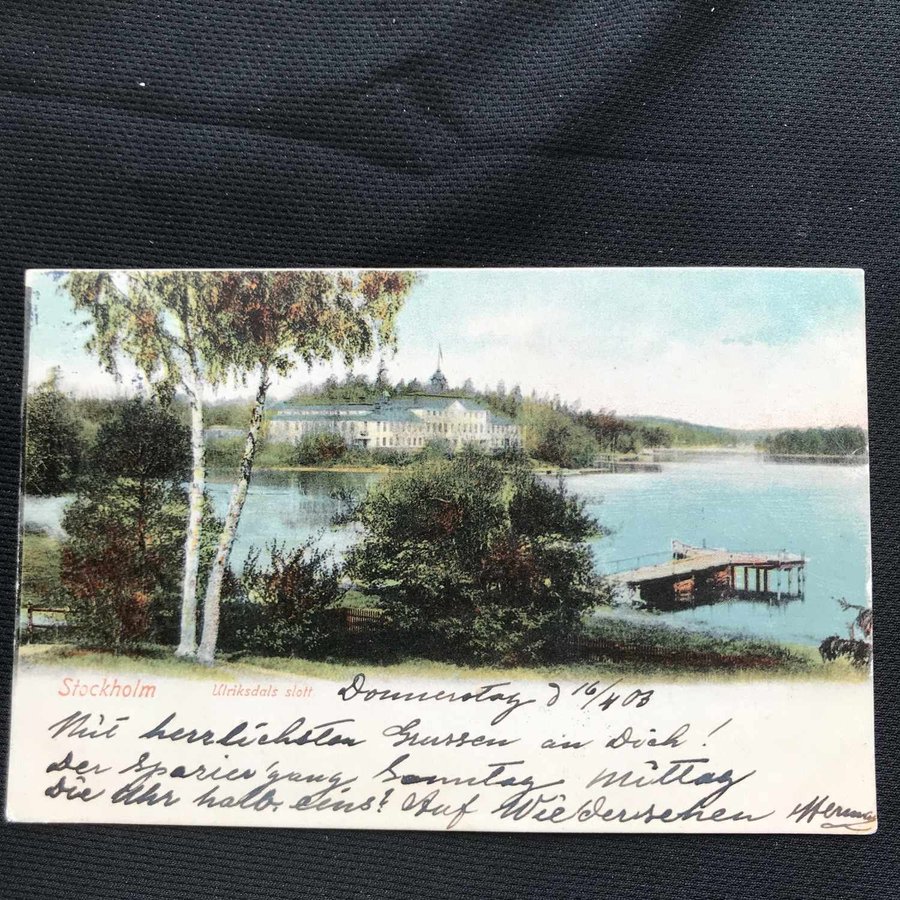 Stockholm
Ulriksdals slott
Donnerstag d 16/4 03
Mit herzlichsten Grussen an Dich!
Der Spazier'gang Sonntag Mittag
Die Uhr halb. eins? Auf Wiedersehen